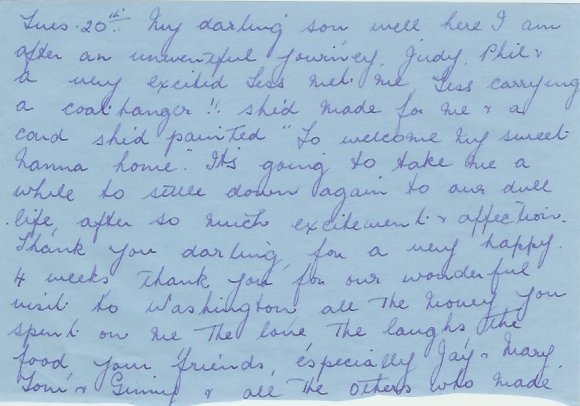 Tues. 20th. My darling son well here I am
after an uneventful journey, Judy, Phil &
a very excited Tess met me, Tess carrying
a coat-hanger!! she'd made for me & a
card she'd painted "To welcome my sweet
Nanna home". It's going to take me a
while to settle down again to our dull
life, after so much excitement & affection.
Thank you darling, for a very happy
4 weeks thank you for our wonderful
visit to Washington all the money you
spent on me the love the laughs the
food your friends, especially Jay & Mary,
Tom & Ginny & all the others who made